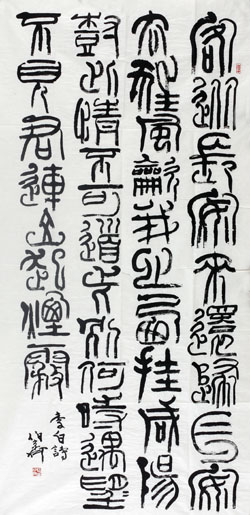 客長安來還歸長安
去狂風龡我心西挂咸陽
樹此情不可道此別何時遇望
不見君連山起煙霧
李白詩